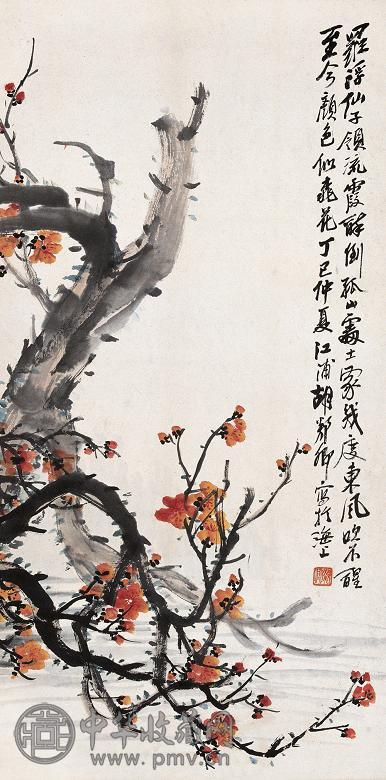 羅浮仙子領流霞醉倒孤山處士家幾度東風吹不醒
至今顏色似桃花丁巳仲夏江浦胡郯卿寫於海上
中华收藏网
www.pmv.cn